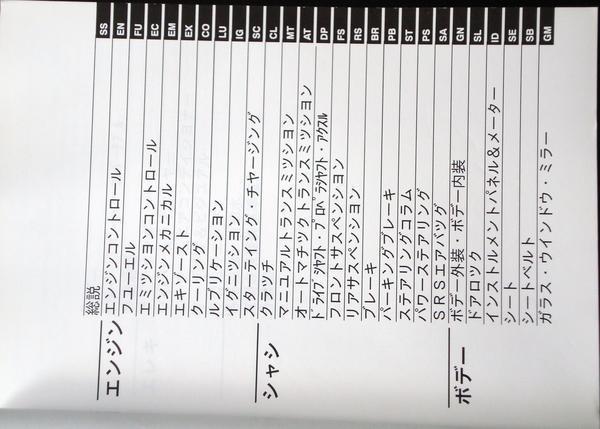 総説 SS
エンジン
エンジンコントロール EN
フユーエル FU
エミッションコントロール EC
エンジンメカニカル EM
エキゾースト EX
クーリング CO
ルブリケーション LU
イグニッション IG
スターティング・チャージング SC
シャシ
クラッチ CL
マニュアルトランスミッション MT
オートマチックトランスミッション AT
ドライブシャフト・プロペラシャフト・アクスル DP
フロントサスペンション FS
リアサスペンション RS
ブレーキ BR
パーキングブレーキ PB
ステアリングコラム ST
パワーステアリング PS
SRSエアバッグ SA
ボデー
ボデー外装・ボデー内装 GN
ドアロック SL
インストルメントパネル&メーター ID
シート SE
シートベルト SB
ガラス・ウインドウ・ミラー GM